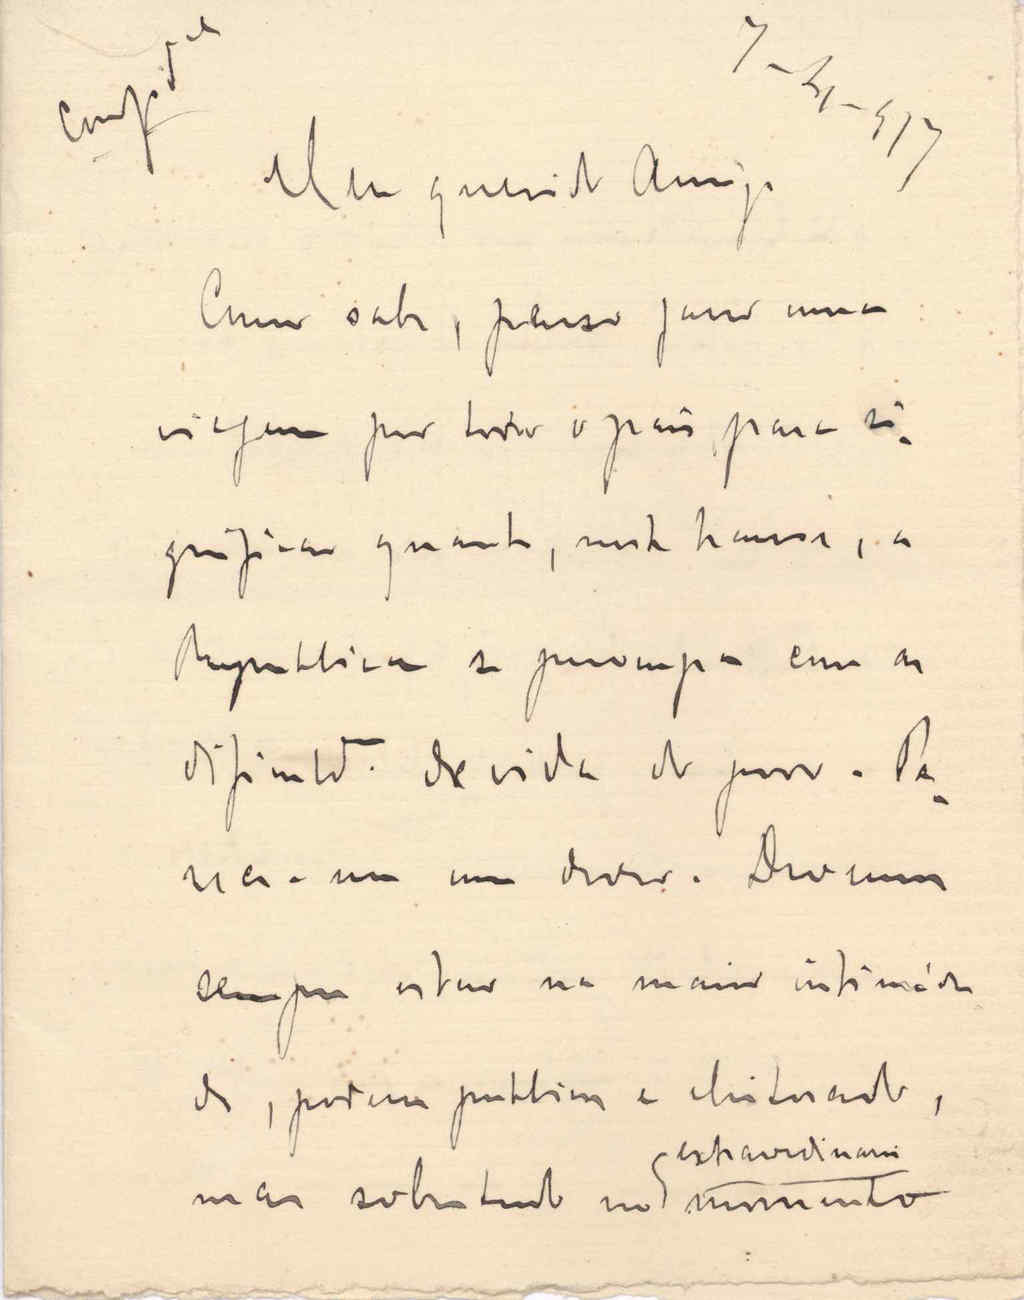 Confid.al
7-4-917
Meu querido Amigo
Como sabe, penso fazer uma
viagem por todo o país, para si-
gnificar quanto, neste transe, a
Republica se preocupa com as
dificuld.es da vida do povo. Pa-
rece-me um dever. Devemos
sempre estar na maior intimida-
de, poderes publicos e eleitorado,
mas sobretudo no extraordinario
momento